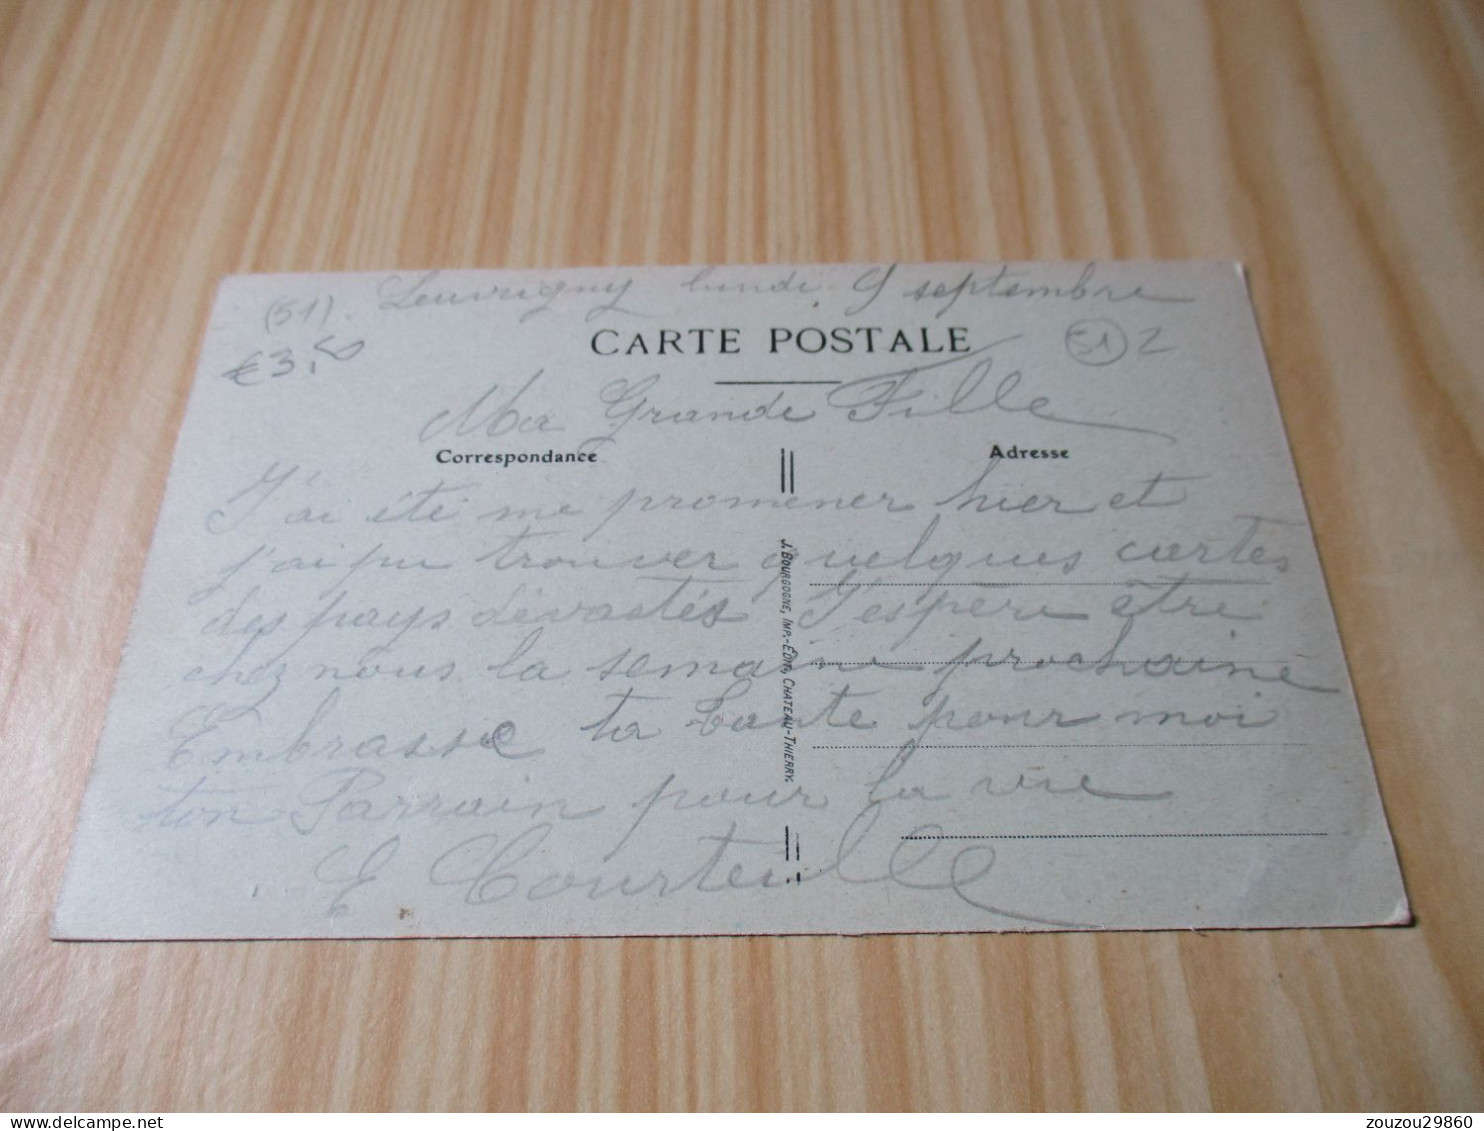 (51). Leuvrigny lundi 9 septembre
€3,50
CARTE POSTALE
51 2
Ma Grande Fille
Correspondance
Adresse
J'ai été me promener hier et
j'ai pu trouver quelques cartes
des pays dévastés J'espère etre
chez nous la semaine prochaine
Embrasse ta tante pour moi
ton Parrain pour la vie
E Courteille
J. BOURGOGNE, IMP.-ÉDIT., CHATEAU-THIERRY.
zouzou29860